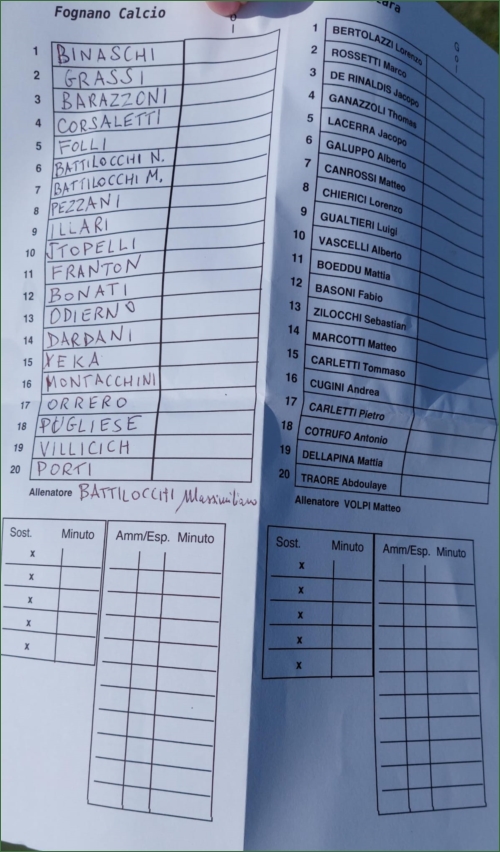 Fognano Calcio
G
o
l
1 BINASCHI
2 GRASSI
3 BARAZZONI
4 CORSALETTI
5 FOLLI
6 BATTILOCCHI N.
7 BATTILOCCHI M.
8 PEZZANI
9 ILLARI
10 STOPELLI
11 FRANTON
12 BONATI
13 ODIERNO
14 DARDANI
15 XEKA
16 MONTACCHINI
17 ORRERO
18 PUGLIESE
19 VILLICICH
20 PORTI
Allenatore BATTILOCCHI Massimiliano
Sost. Minuto
x
x
x
x
x
Amm/Esp. Minuto
G
o
l
1 BERTOLAZZI Lorenzo
2 ROSSETTI Marco
3 DE RINALDIS Jacopo
4 GANAZZOLI Thomas
5 LACERRA Jacopo
6 GALUPPO Alberto
7 CANROSSI Matteo
8 CHIERICI Lorenzo
9 GUALTIERI Luigi
10 VASCELLI Alberto
11 BOEDDU Mattia
12 BASONI Fabio
13 ZILOCCHI Sebastian
14 MARCOTTI Matteo
15 CARLETTI Tommaso
16 CUGINI Andrea
17 CARLETTI Pietro
18 COTRUFO Antonio
19 DELLAPINA Mattia
20 TRAORE Abdoulaye
Allenatore VOLPI Matteo
Sost. Minuto
x
x
x
x
x
Amm/Esp. Minuto